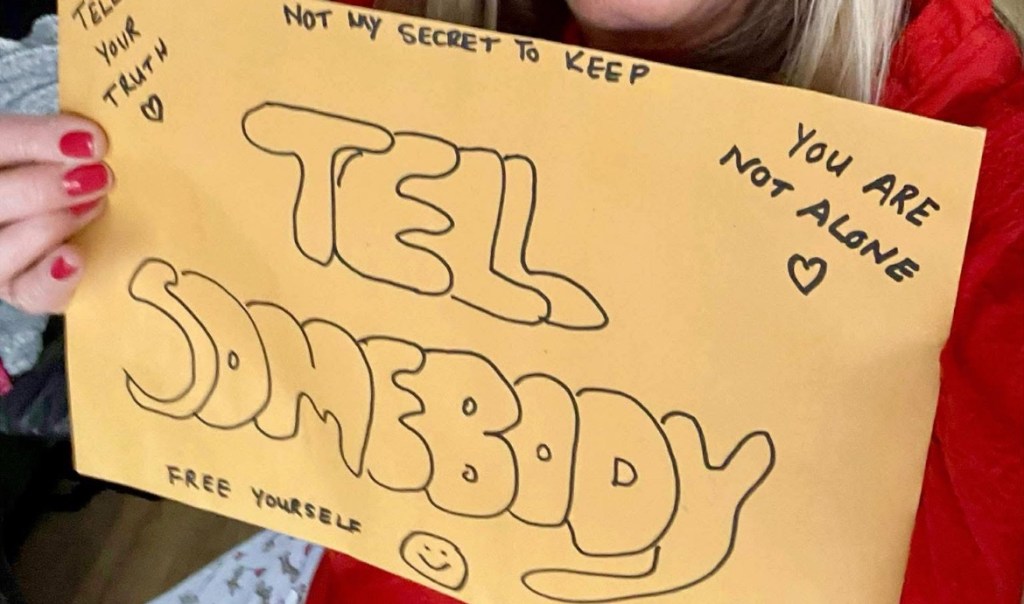 TELL
YOUR
TRUTH
NOT MY SECRET TO KEEP
YOU ARE
NOT ALONE
TELL
SOMEBODY
FREE YOURSELF